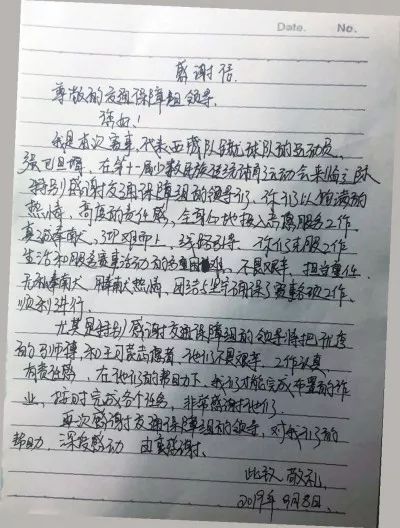 Date. No.
感谢信
尊敬的交通保障组领导
您好！
我是本次赛事,代表西藏队 球队的运动员,
强巴旦增,在第十一届少数民族传统体育运动会来临之际
特别感谢交通保障组的领导们,你们以饱满的
热情、高度的责任感、全身心地投入志愿服务工作
真诚奉献、迎难而上、 你们克服工作
生活和服务赛事活动的 困难、不畏艰辛、担当重任、
无私奉献、用 热情、团结 确保了赛事各项工作、
顺利进行.
尤其是特别感谢交通保障组的领导将把优秀
的马师傅和王司 志愿者,他们不畏艰辛、工作认真
有责任感,在他们的帮助下,我们才能完成布置的作
业,按时完成各个任务,非常感谢他们.
再次感谢交通保障组的领导,对我们的
帮助、深表感动 由衷感谢、
此致 敬礼
2019年9月8日.